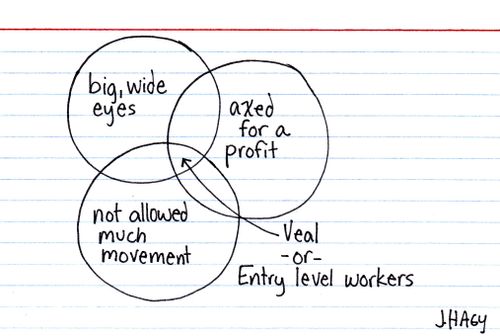 big, wide
eyes
axed
for a
profit
not allowed
much
movement
Veal
-or-
Entry level workers
J.HAGY